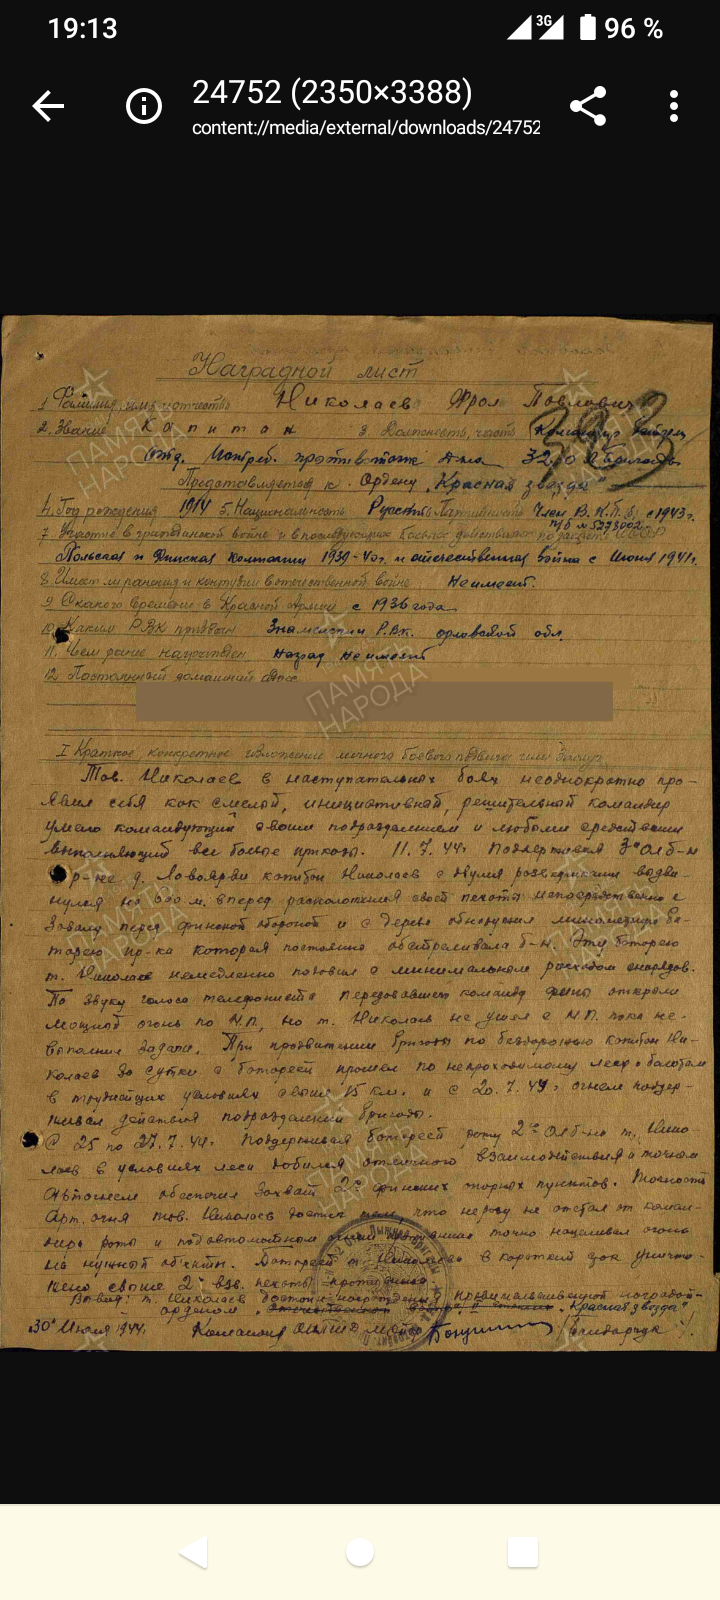 19:13
3G
96 %
24752 (2350×3388)
content://media/external/downloads/24752
Наградной лист
1 Фамилия, имя и отчество Николаев Фрол Павлович
2. Звание Капитан 3 Должность, часть Командир батареи
отд. Истреб. противотанк д-на 32 бригады
Представляется к Ордену „Красная звезда"
4. Год рождения 1914 5. Национальность Русский Партийность Член В.К.П.б. с 1943 г.
п/б № 5273002
7 Участие в гражданской войне и в последующих боевых действиях по защите СССР
Польская и Финская компании 1939-40г. и отечественная война с Июня 1941г.
8. Имеет ли ранения и контузии в отечественной войне Не имеет.
9 С какого времени в Красной Армии с 1936 года
10 Каким РВК призван Р.В.К. орловской обл.
11. Чем ранее награжден Наград не имеет
12 Постоянный домашний адрес
ПАМЯТЬ НАРОДА
I Краткое конкретное изложение личного боевого подвига или заслуг
Тов. Николаев в наступательных боях неоднократно про-
явил себя как смелый, инициативный, решительный командир
умело командующий своим подразделением и любыми средствами
выполняющий все боевые приказы. 11.7.44г Поддерживая 3й ОЛБ-н
в р-не д. капитан Николаев с двумя разведчиками выдви-
нулся на м. вперед расположения своей пехоты непосредственно к
завалу перед финской обороной и с дерева обнаружил минометную ба-
тарею пр-ка которая постоянно обстреливала б-н. Эту батарею
т. Николаев немедленно подавил с минимальным расходом снарядов.
По звуку голоса телефониста передававшего команду фины открыли
мощный огонь по НП, но т. Николаев не ушел с НП пока не
выполнил задачи. При продвижении бригады по бездорожью капитан Ни-
колаев за сутки с батареей прошел по непроходимому лесу и болотам
в труднейших условиях свыше 15 км. и с 20.7.44г огнем поддер-
живал действия подразделений бригады.
С 25 по 27.7.44г. Поддерживая батареей роту 2го ОЛБ-на т. Нико-
лаев в условиях леса добился отличного взаимодействия и точным
обеспечил захват 2х финских опорных пунктов. Точность
Арт. огня тов. Николаев достиг тем, что не разу не отстал от коман-
дира роты и под автоматным огнем точно нацеливал огонь
на нужный объекты. Батареей т. Николаева в короткий срок уничто-
жено свыше 2х взв. пехоты противника.
Вывод: т. Николаев достоин награждения правительственной наградой-
орденом „Красная звезда"
30го Июля 1944г Командир ОИПТД майор /Бондарчук/.